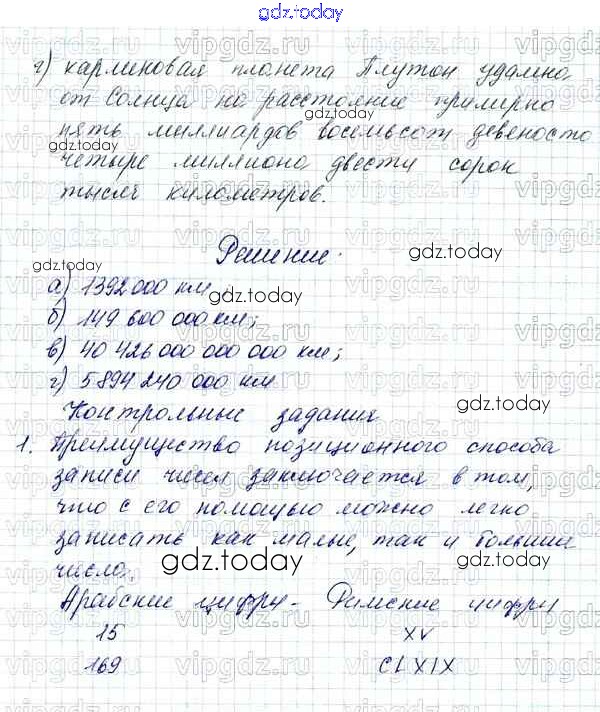 gdz.today
г) карликовая планета Плутон удалена
от Солнца на расстояние примерно
пять миллиардов восемьсот девеносто
четыре миллиона двести сорок
тысяч километров.
Решение.
а) 1392 000 км
б) 149 600 000 км;
в) 40 426 000 000 000 км;
г) 5 894 240 000 км
Контрольные задания
1. Преимущество позиционного способа
записи чисел заключается в том,
что с его помощью можно легко
записать как малые, так и большие
число.
Арабские цифры - Римские цифры
15 XV
169 CLXIX